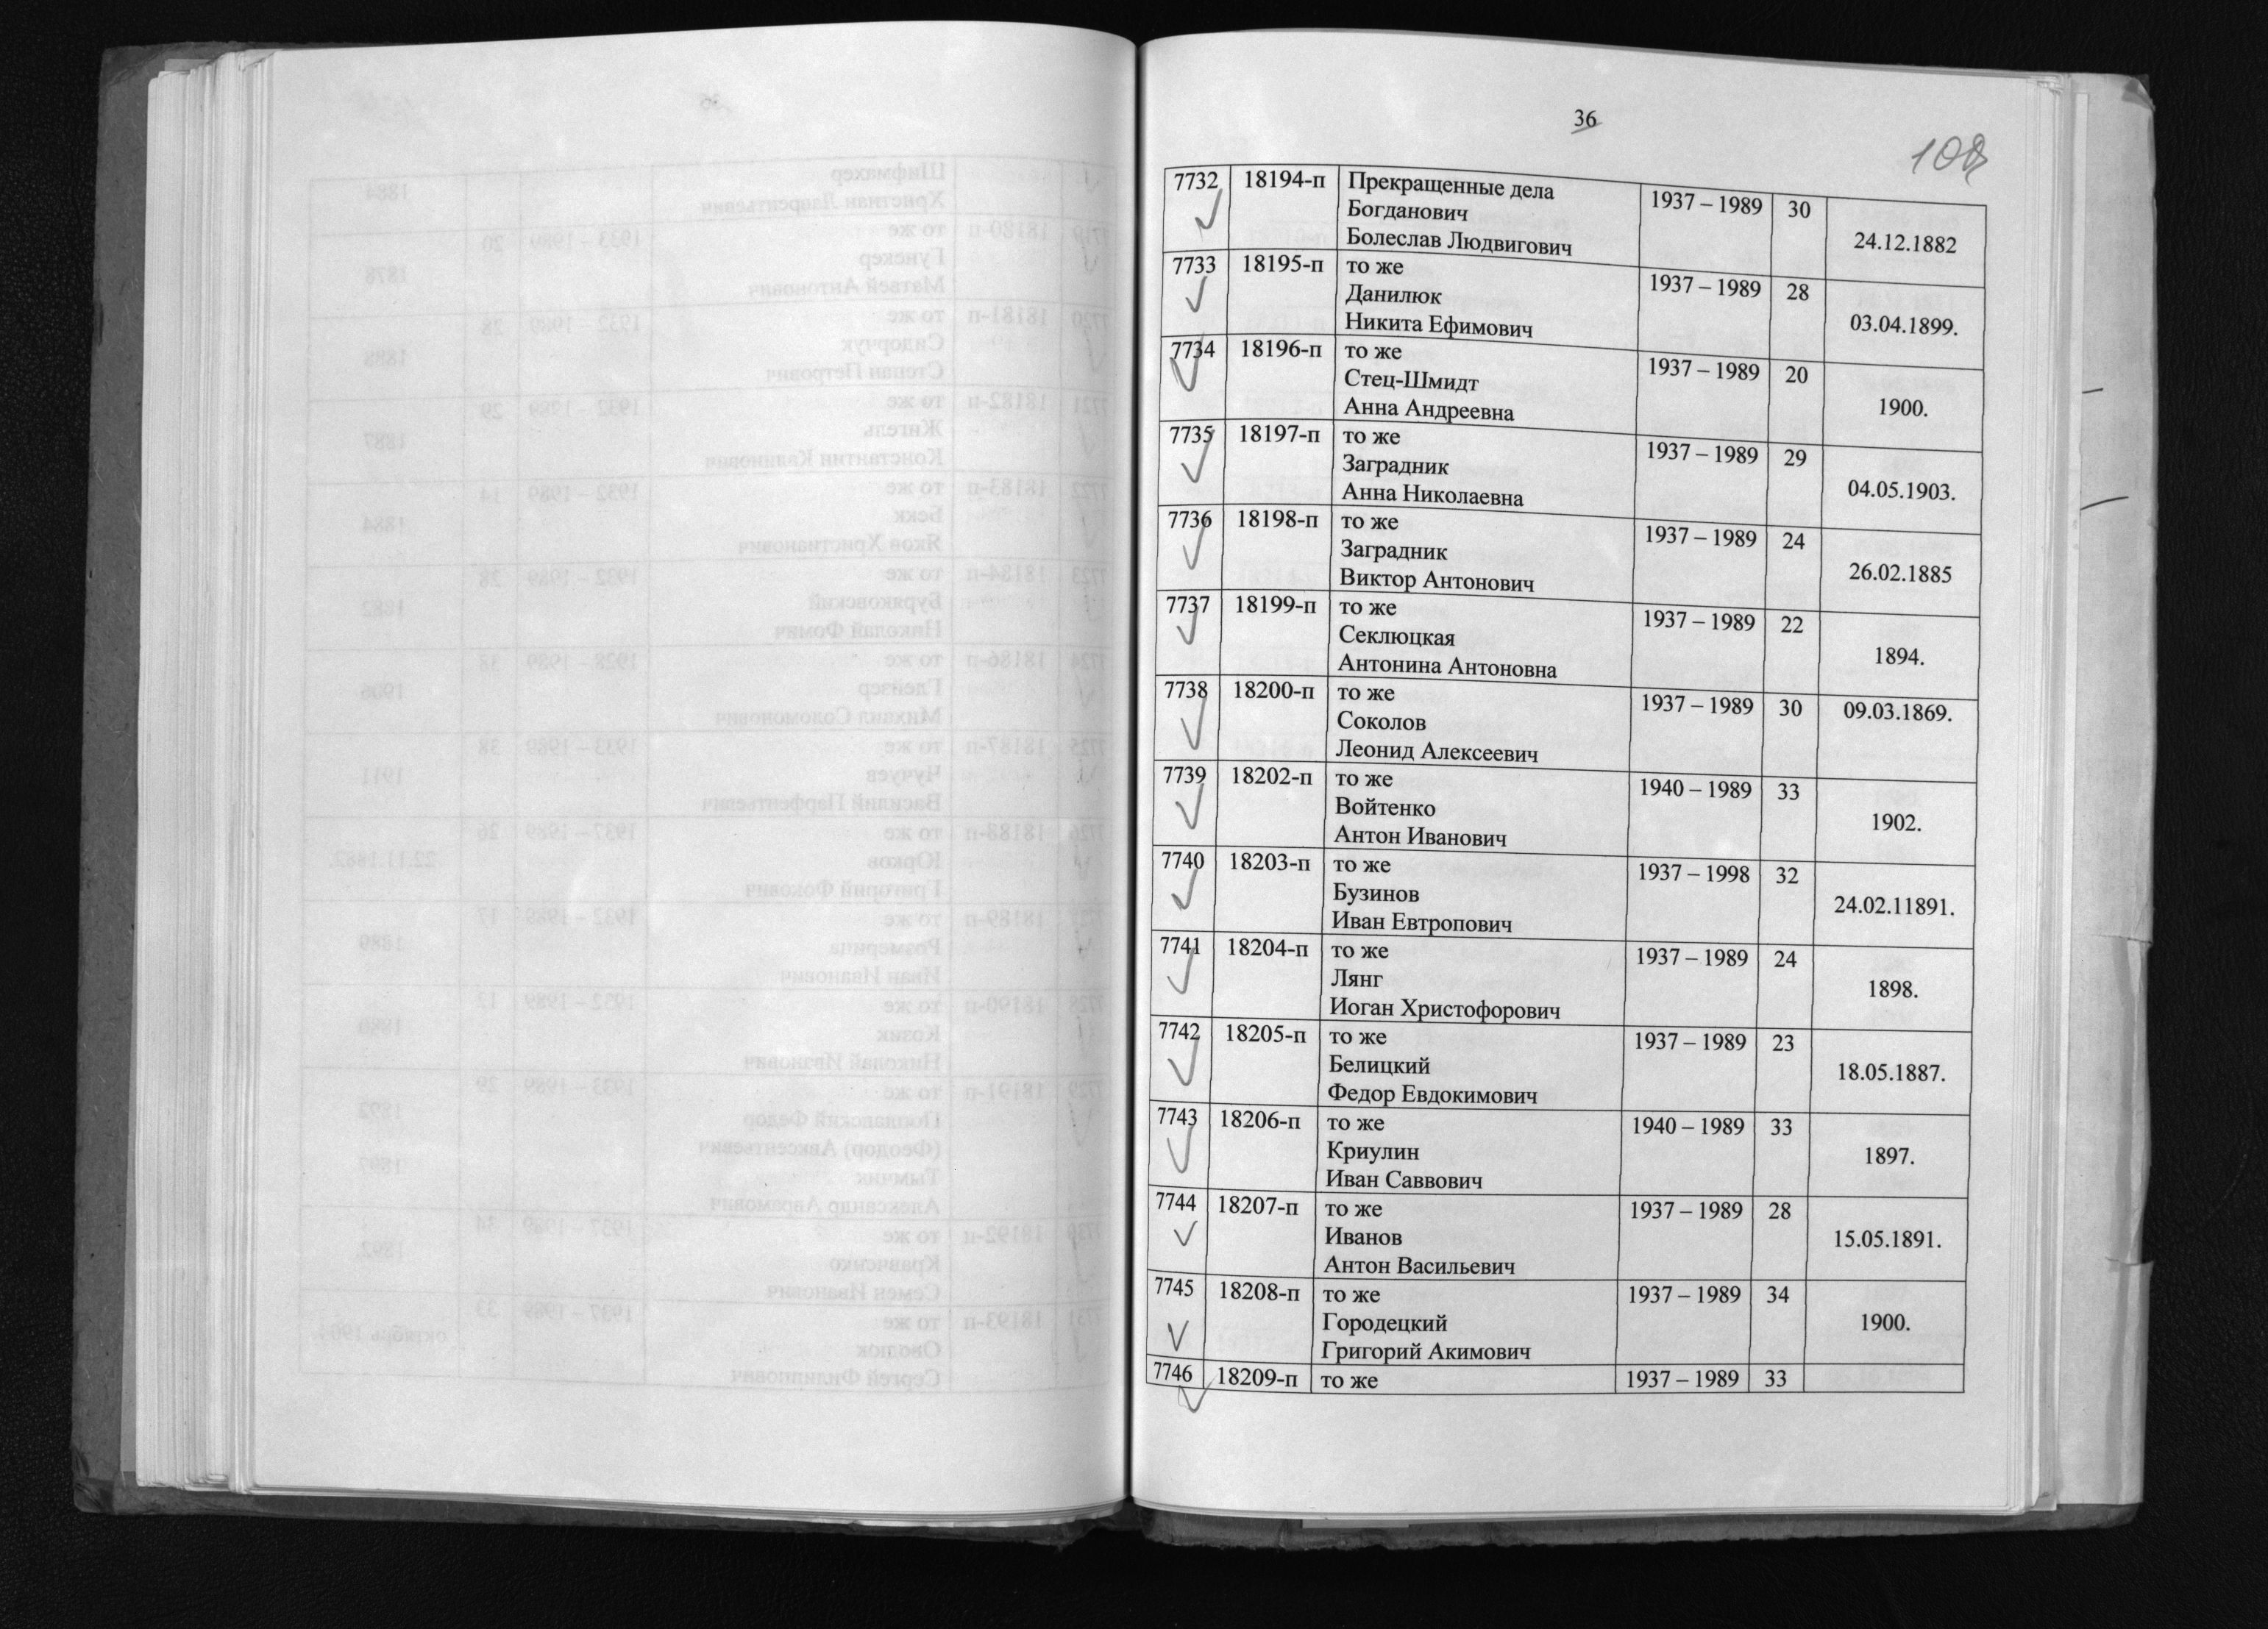 36
7732 18194-п Прекращенные дела 1937 – 1989 30
Богданович
Болеслав Людвигович 24.12.1882
7733 18195-п то же 1937 – 1989 28
Данилюк
Никита Ефимович 03.04.1899.
7734 18196-п то же 1937 – 1989 20
Стец-Шмидт
Анна Андреевна 1900.
7735 18197-п то же 1937 – 1989 29
Заградник
Анна Николаевна 04.05.1903.
7736 18198-п то же 1937 – 1989 24
Заградник
Виктор Антонович 26.02.1885
7737 18199-п то же 1937 – 1989 22
Секлюцкая
Антонина Антоновна 1894.
7738 18200-п то же 1937 – 1989 30 09.03.1869.
Соколов
Леонид Алексеевич
7739 18202-п то же 1940 – 1989 33
Войтенко
Антон Иванович 1902.
7740 18203-п то же 1937 – 1998 32
Бузинов
Иван Евтропович 24.02.11891.
7741 18204-п то же 1937 – 1989 24
Лянг
Иоган Христофорович 1898.
7742 18205-п то же 1937 – 1989 23
Белицкий
Федор Евдокимович 18.05.1887.
7743 18206-п то же 1940 – 1989 33
Криулин
Иван Саввович 1897.
7744 18207-п то же 1937 – 1989 28
Иванов
Антон Васильевич 15.05.1891.
7745 18208-п то же 1937 – 1989 34
Городецкий
Григорий Акимович 1900.
7746 18209-п то же 1937 – 1989 33